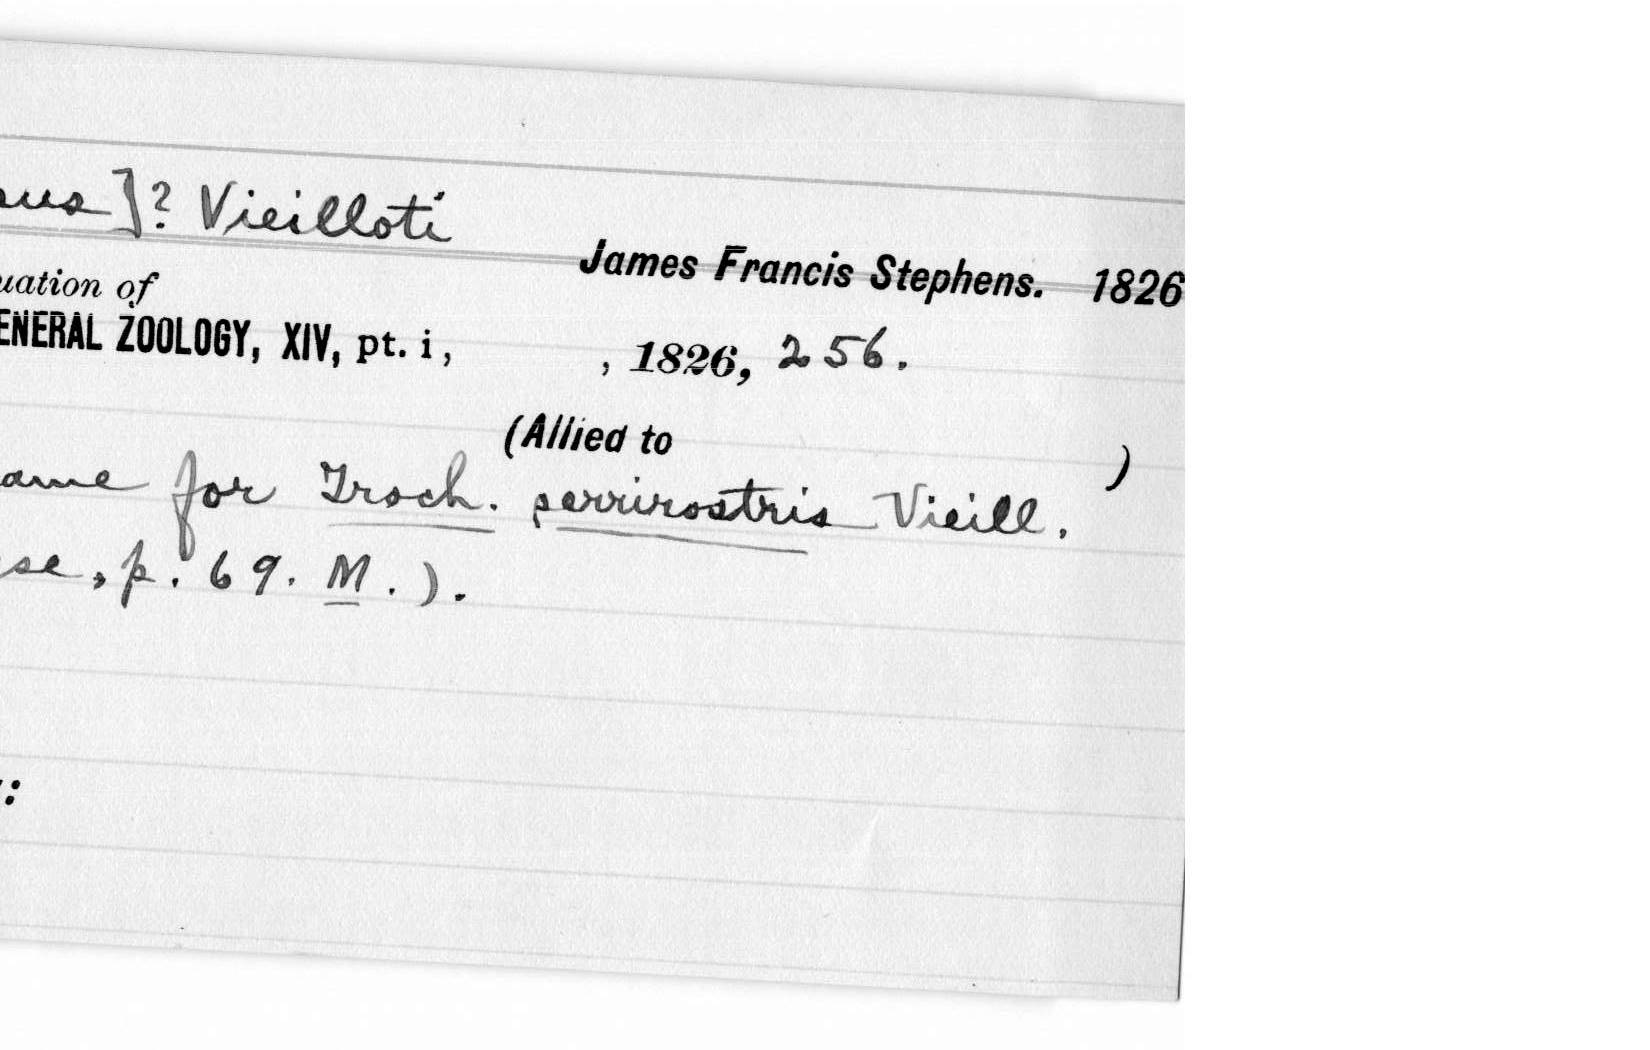 sus]? Vieilloti
James Francis Stephens. 1826
uation of
ENERAL ZOOLOGY, XIV, pt. i, , 1826, 256.
(Allied to )
ame for Troch. serrirostris Vieill.
se, p. 69. M.).
: